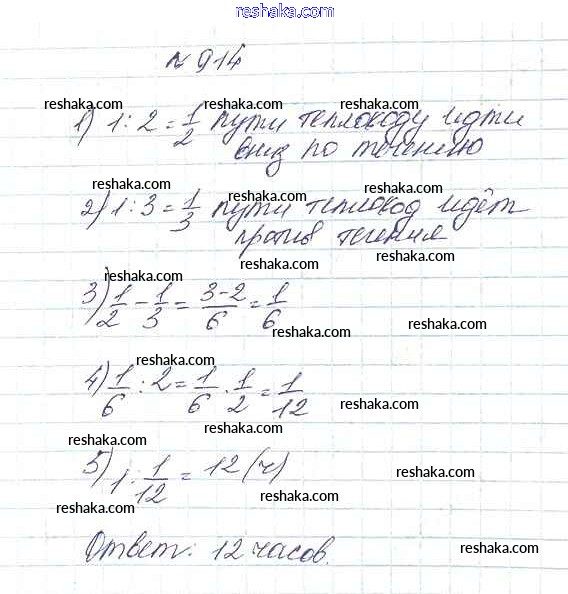 reshaka.com
№ 914
reshaka.com
reshaka.com
reshaka.com
1) 1 : 2 = 1/2 пути теплоходу идти
вниз по течению
reshaka.com
reshaka.com
2) 1 : 3 = 1/3 пути теплоход идёт
против течения
reshaka.com
reshaka.com
3) 1/2 - 1/3 = 3-2/6 = 1/6
reshaka.com
reshaka.com
reshaka.com
4) 1/6 : 2 = 1/6 · 1/2 = 1/12
reshaka.com
reshaka.com
5) 1 : 1/12 = 12 (ч)
reshaka.com
reshaka.com
reshaka.com
Ответ: 12 часов.
reshaka.com